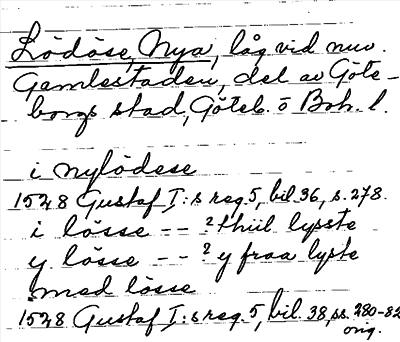 Lödöse, Nya, låg vid nuv.
Gamlestaden, del av Göte-
borgs stad, Göteb. o Boh. l.
i nylödese
1528 Gustaf I:s reg. 5, bil. 36, s. 278.
i lösse -- ? thiil lysste
y lösse -- ? y fraa lyste
med lösse
1528 Gustaf I:s reg. 5, bil. 38, ss. 280-82
orig.